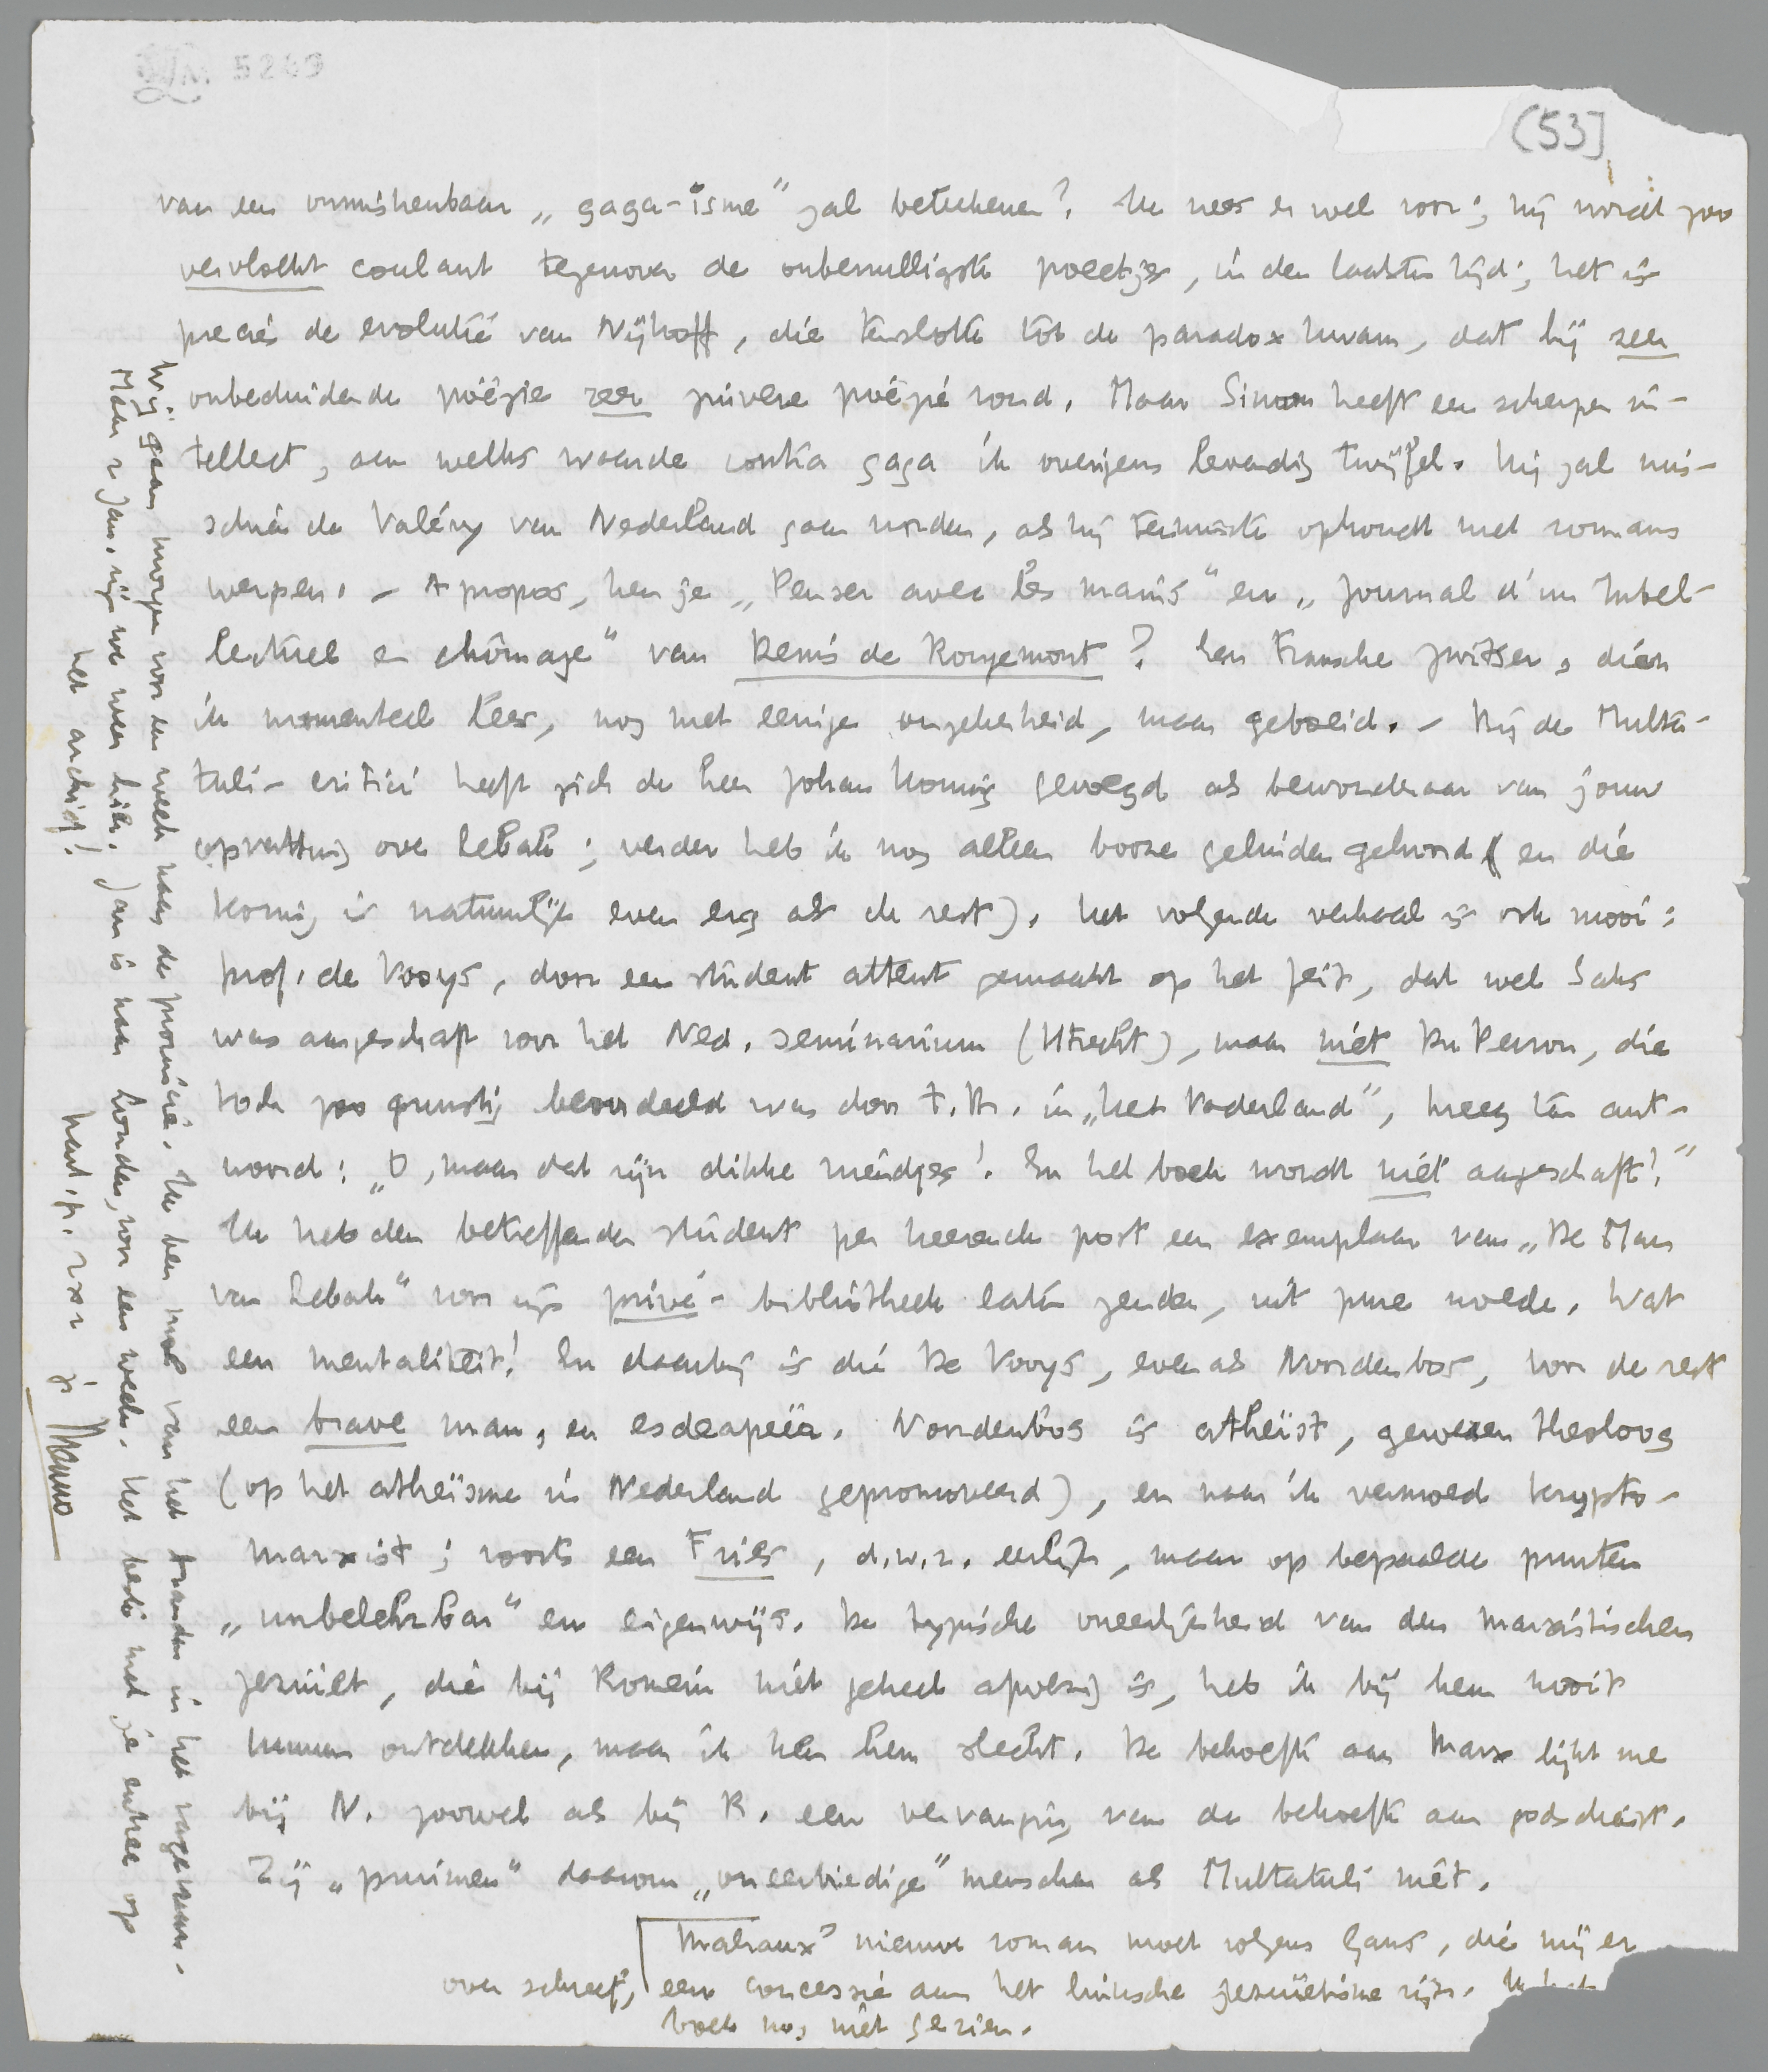 LM 5249
(53]
van een onmiskenbaar „gaga-isme" zal beteekenen? Ik vrees er wel voor; hij wordt zoo
vervloekt coulant tegenover de onbenulligste poëetjes, in den laatsten tijd; het is
precies de evolutie van Nijhoff, die tenslotte tot de paradox kwam, dat hij zeer
onbeduidende poëzie zeer zuivere poëzie vond. Maar Simon heeft een scherpen in-
tellect, aan welks waarde contra gaga ik overigens levendig twijfel. Hij zal mis-
schien de Valéry van Nederland gaan worden, als hij tenminste ophoudt met romans
werpen. – A propos, ken je „Penser avec les mains" en „Journal d'un Intel-
lectuel en chômage" van Denis de Rougemont? Een Fransche Zwitser, dien
ik momenteel lees, nog met eenige ongekendheid, maar geboeid. – Bij de Multa-
tuli-critici heeft zich de heer Johan Koning gevoegd als bewonderaar van jouw
opvatting over Lebak; verder heb ik nog alleen booze geluiden gehoord (en die
Koning is natuurlijk even erg als de rest). Het volgende verhaal is ook mooi:
prof. de Vooys, door een student attent gemaakt op het feit, dat wel Saks
was aangeschaft voor het Ned. Seminarium (Utrecht), maar niet Du Perron, die
toch zoo gunstig beoordeeld was door t. B. in „Het Vaderland", kreeg tot ant-
woord: „O, maar dat zijn dikke vriendjes! En het boek wordt niet aangeschaft!"
Ik heb den betreffenden student per keerende post een exemplaar van „De Man
van Lebak" voor zijn privé-bibliotheek laten zenden, uit pure woede. Wat
een mentaliteit! En daarbij is die De Vooys, evenals Noordenbos, voor de rest
een brave man, en esdeapeeër. Noordenbos is atheïst, gewezen theoloog
(op het atheïsme in Nederland gepromoveerd), en naar ik vermoed krypto-
marxist; voorts een Fries, d.w.z. eerlijk, maar op bepaalde punten
„unbelehrbar" en eigenwijs. De typische oneerlijkheid van den marxistischen
jezuïet, die bij Romein niet geheel afwezig is, heb ik bij hem nooit
kunnen ontdekken, maar ik ken hem slecht. De behoefte aan Marx lijkt me
bij N. zoowel als bij R. een vervanging van de behoefte aan godsdienst.
Zij „pruimen" daarom „oneerbiedige" menschen als Multatuli niet.
Malraux' nieuwe roman moet volgens Gans, die mij er
over schreef, een concessie aan het linksche jezuïetisme zijn. Ik heb
boek nog niet gezien.
Wij gaan morgen voor een week naar de provincie. Ik ben moe van het tranden in het
Maar 2 Jan. zijn we weer hier. Jan is naar Londen, voor een week. Het beste met je entree op
het archief!
hart. gr. 2 x 2 je Menno